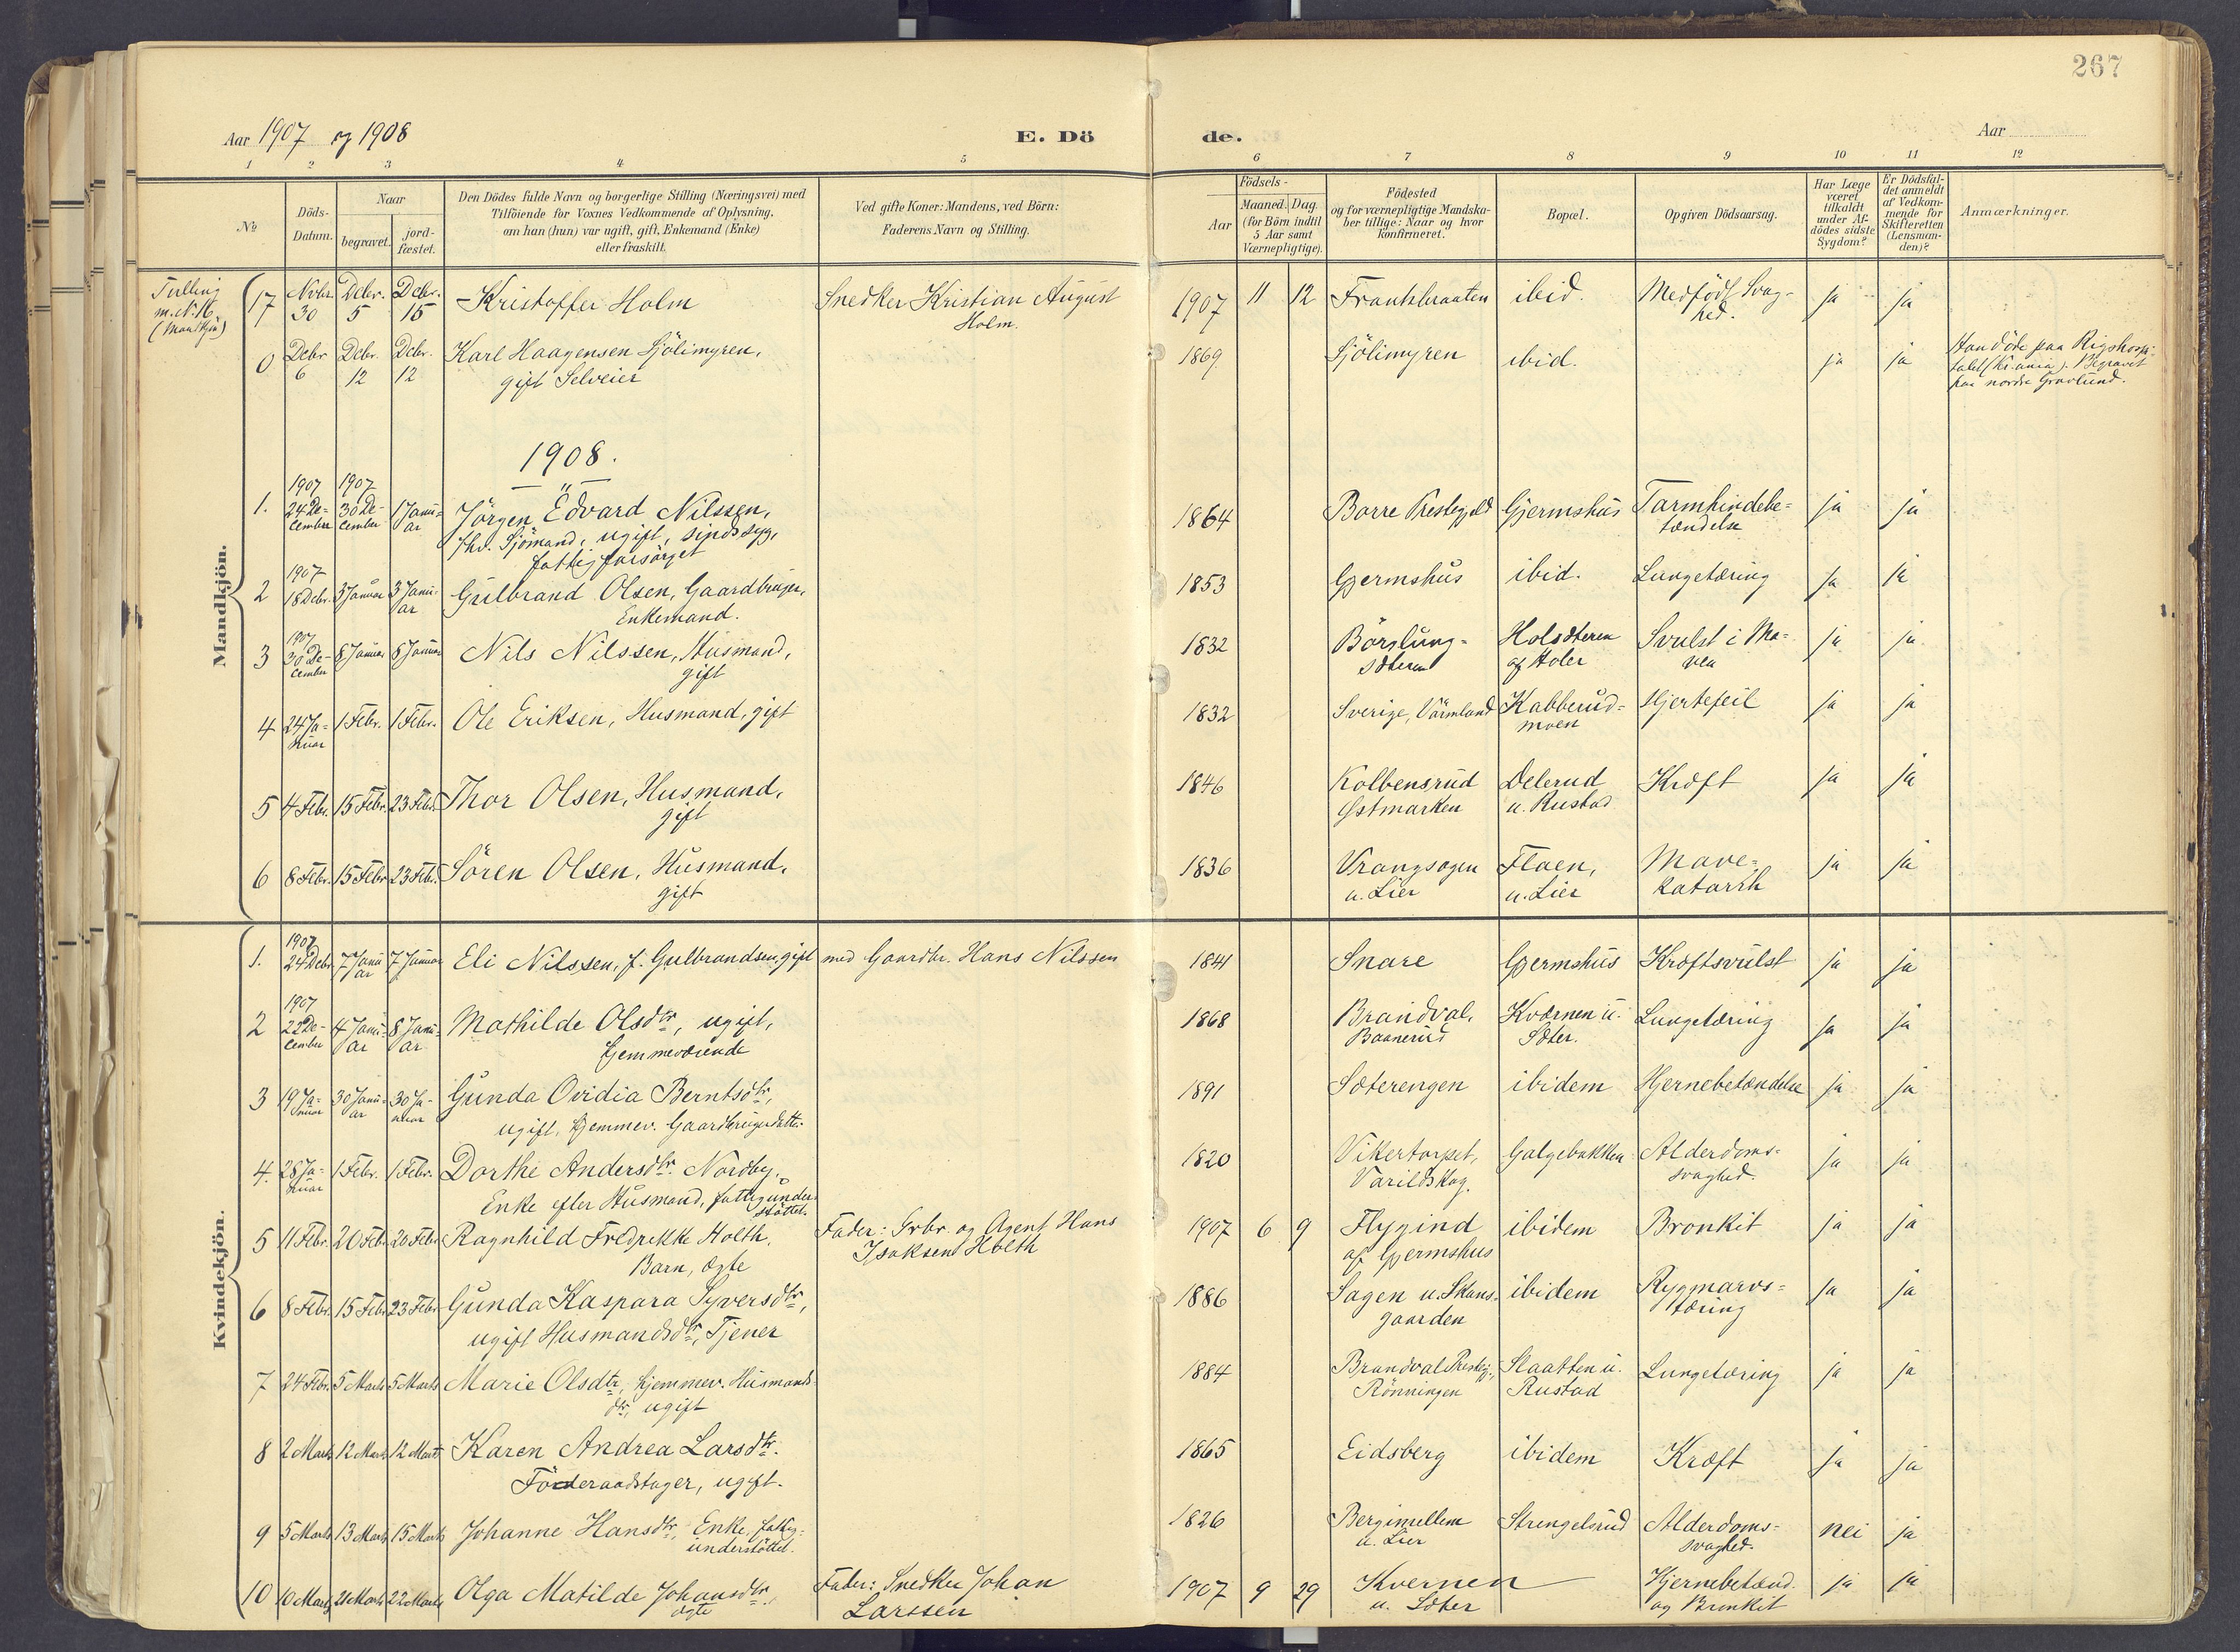 267
Aar 1907 og 1908
E. Dö de.
Aar
1 2 3 4 5 6 7 8 9 10 11 12
№
Döds-
Datum.
Naar
begravet.
jord-
fæstet.
Den Dödes fulde Navn og borgerlige Stilling (Næringsvei) med
Tilföiende for Voxnes Vedkommende af Oplysning,
om han (hun) var ugift, gift, Enkemand (Enke)
eller fraskilt.
Ved gifte Koner: Mandens, ved Börn:
Faderens Navn og Stilling.
Födsels-
Aar
Maaned. Dag.
(for Börn indtil
5 Aar samt
Værnepligtige).
Födested
og for værnepligtige Mandska-
ber tillige: Naar og hvor
konfirmeret.
Bopæl.
Opgiven Dödsaarsag.
Har Læge
været
tilkaldt
under Af-
dödes sidste
Sygdom?
Er Dödsfal-
det anmeldt
af Vedkom-
mende for
Skifteretten
(Lensman-
den)?
Anmærkninger.
Mandkjön.
Tvilling
m. N. 16
(Mandkjön)
17 Novbr. 30 Debr. 5 Debr. 15 Kristoffer Holm Snedker Kristian August
Holm.
1907 11 12 Frankbraaten ibid. Medfödt Svag-
hed. ja ja
0 Debr 6 Debr. 12 Debr. 12 Karl Haagensen Sjölimyren,
gift Selveier
1869 Sjölimyren ibid. ja ja
Han döde paa Rigshospi-
talet (Kr.ania). Begravet
paa nordre Gravlund.
1908.
1. 1907 24 De-
cember 1907 30 De-
cember 1 Janu-
ar Jörgen Edvard Nilssen,
fhv. Sjömand, ugift, sindssyg,
fattigforsörget
1864 Borre Prestegjeld Gjermshus Tarmhindebe-
tændelse ja ja
2 1907 18 Debr. 3 Januar 3 Janu-
ar Gulbrand Olsen, Gaardbruger,
Enkemand.
1853 Gjermshus ibid. Lungetæring ja ja
3 1907 30 De-
cember 8 Januar 8 Januar Nils Nilssen, Husmand,
gift
1832 Börslung-
sæteren Holsæteren
af Holer Svulst i Ma-
ven ja ja
4 24 Ja-
nuar 1 Febr. 1 Febr. Ole Eriksen, Husmand, gift
1832 Sverige, Värmland Kabberud-
moen Hjertefeil ja ja
5 4 Febr. 15 Febr. 23 Febr. Thor Olsen, Husmand,
gift
1846 Kolbensrud
Østmarken Delerud
u. Rustad Kræft ja ja
6 8 Febr. 15 Febr 23 Febr. Sören Olsen, Husmand,
gift
1836 Vrangsagen
u. Lier Flaen,
u. Lier Mave-
katarrh ja ja
Kvindekjön.
1. 1907 24 Debr 7 Janu
ar 7 Januar Eli Nilssen, f. Gulbrandsen, gift med Gaardbr. Hans Nilssen
1841 Snare Gjermshus Kræftsvulst ja ja
2 1907 22 De-
cember 4 Janu-
ar 8 Janu-
ar Mathilde Olsdtr, ugift,
hjemmeværende
1868 Brandval,
Baanerud Kværnen u.
Sæter. Lungetæring ja ja
3 19 Ja-
nuar 30 Janu-
ar 30 Ja-
nuar Gunda Ovidia Berntsdtr,
ugift, hjemmev. Gaardbrugerdatter
1891 Sæterengen ibidem Hjernebetændelse ja ja
4. 28 Ja-
nuar 1 Febr. 1 Febr. Dorthe Andersdtr Nordby,
Enke efter Husmand, fattigunder-
støttet.
1820 Vikertorpet,
Varildskog. Galgebakken Alderdoms-
svaghed. ja ja
5 11 Febr. 20 Feb. 20 Febr Ragnhild Fredrikke Holth,
Barn, ægte Fader: Grbr. og Agent Hans
Isaksen Holth
1907 6 9 Flygind
af Gjermshus ibidem Bronkit ja ja
6 8 Febr. 15 Febr 23 Febr Gunda Kaspara Syversdtr,
ugift Husmandsdtr, Tjener
1886 Sagen u. Skans-
gaarden ibidem Rygmarvs-
tæring ja ja
7 24 Febr. 5 Marts 5 Marts Marie Olsdtr, hjemmev. Husmands-
dtr, ugift
1884 Brandval Prestegj.,
Rönningen Slaatten u.
Rustad Lungetæring ja ja
8 2 Marts 12 Marts 12 Marts Karen Andrea Larsdtr.
Föderaadstager, ugift.
1865 Eidsberg ibidem Kræft ja ja
9 5 Marts 13 Marts 15 Marts Johanne Hansdtr, Enke, fattig-
understöttet.
1826 Bergimellem
u. Lier Strengelsrud Alderdoms-
svaghed. nei ja
10 10 Marts 21 Marts 22 Marts Olga Matilde Johansdtr.,
ægte Fader: Snedker Johan
Larssen
1907 9 29 Kvernen
u. Sæter Hjernebetænd.
og Bronkit ja ja